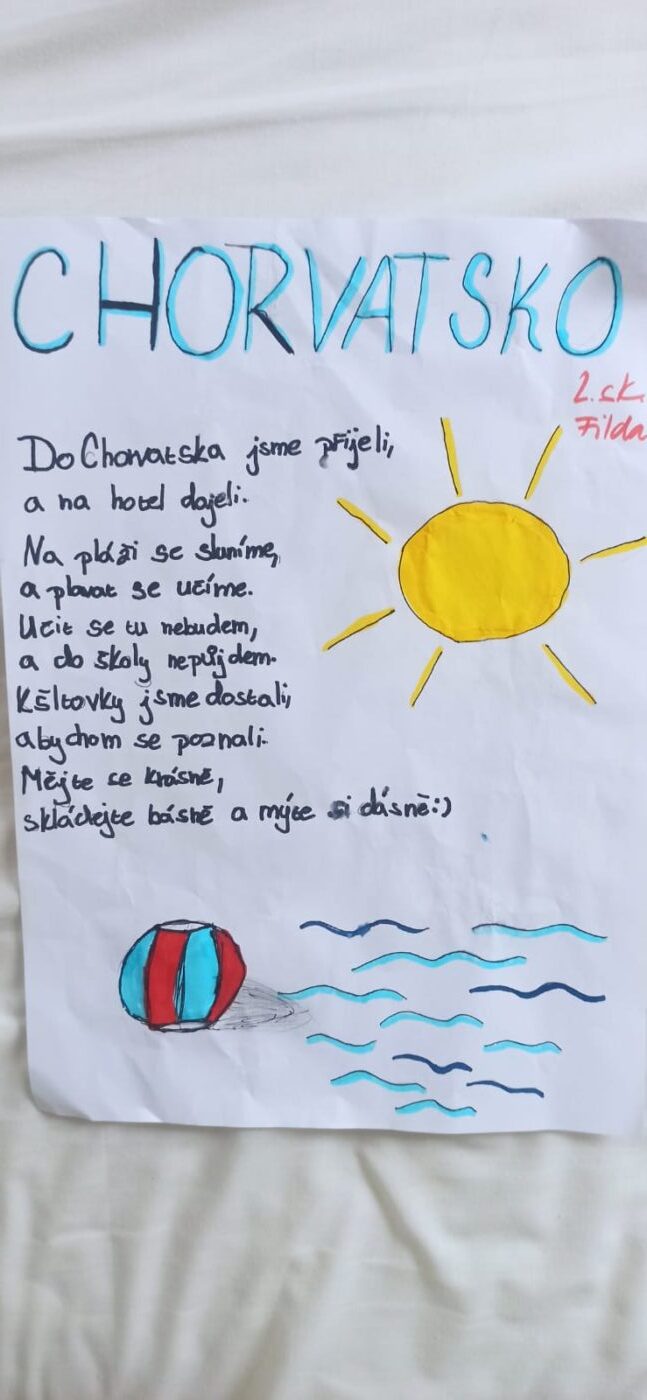 CHORVATSKO
2. sk.
Filda
Do Chorvatska jsme přijeli,
a na hotel dojeli.
Na pláži se sluníme,
a plavat se učíme.
Učit se tu nebudem,
a do školy nepůjdem.
Kšiltovky jsme dostali,
abychom se poznali.
Mějte se krásně,
skládejte básně a mýte si dásně:)